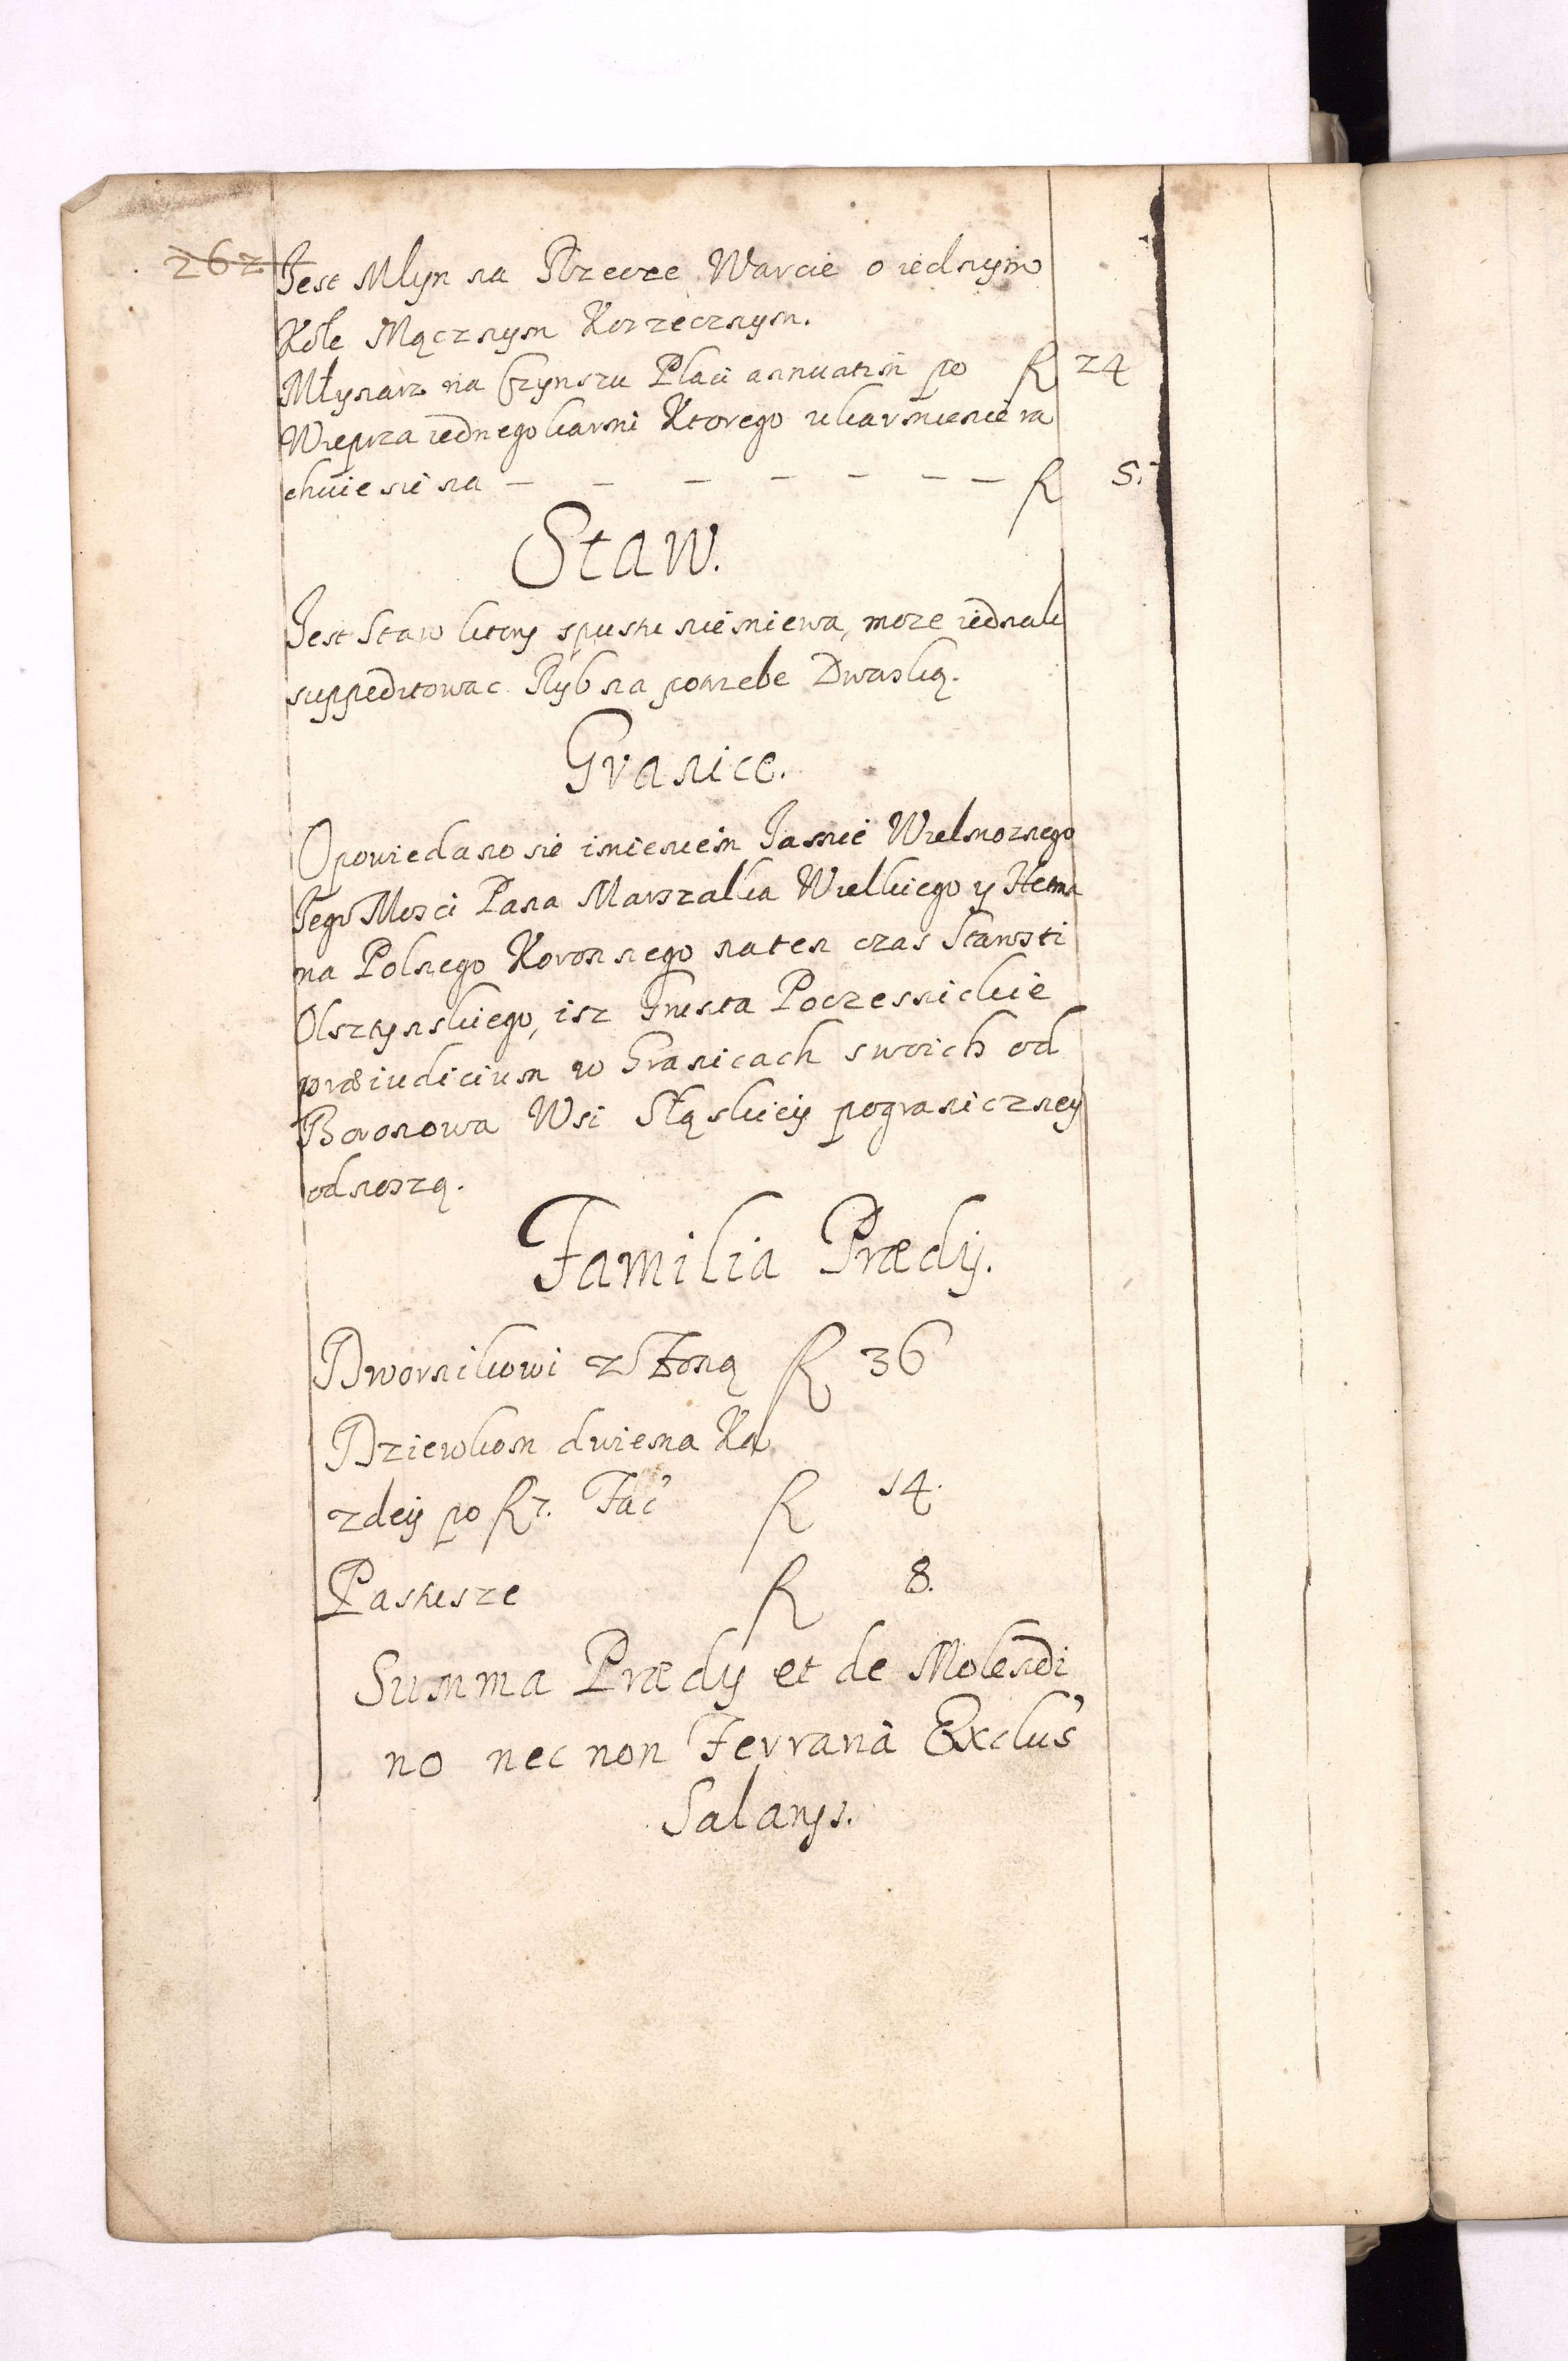 262
Jest Młyn na Rzecze Warcie o iednym
Kole Mącznym Korzecznym.
Młynarz na Czynszu Płaci annuatim po fl 24
Wieprza iednego karmi Ktorego ukarmienie ra
chuie sie na — — — — — — — fl 5.
Staw.
Jest Staw ktory spustu nie miewa, moze iednak
suppeditowac Ryb na potrzebe Dworską.
Granice.
Opowiedano sie imieniem Jasnie Wielmoznego
Jego Mosci Pana Marszałka Wielkiego y Hetma
na Polnego Koronnego na ten czas Starosti
Olsztynskiego, isz Grunta Poczesnickie
præiudicium w Granicach swoich od
Boronowa Wsi Sląskieij pograniczney
odnoszą.
Familia Prædij.
Dwornikowi z Zoną fl 36
Dziewkom dwiema Ka
zdeij po fl 7. Fac' fl 14.
Pastusze fl 8.
Summa Prædij et de Molendi
no nec non Ferraria Exclus'
Salarijs.